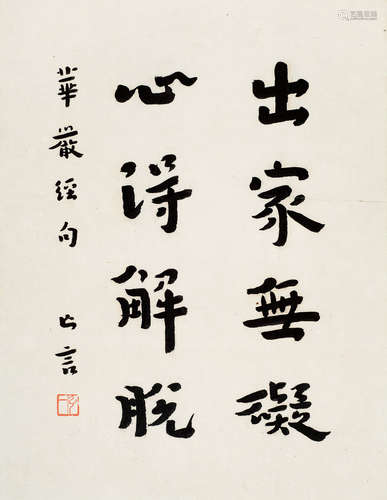 出家無礙
心得解脫
華嚴經句 亡言